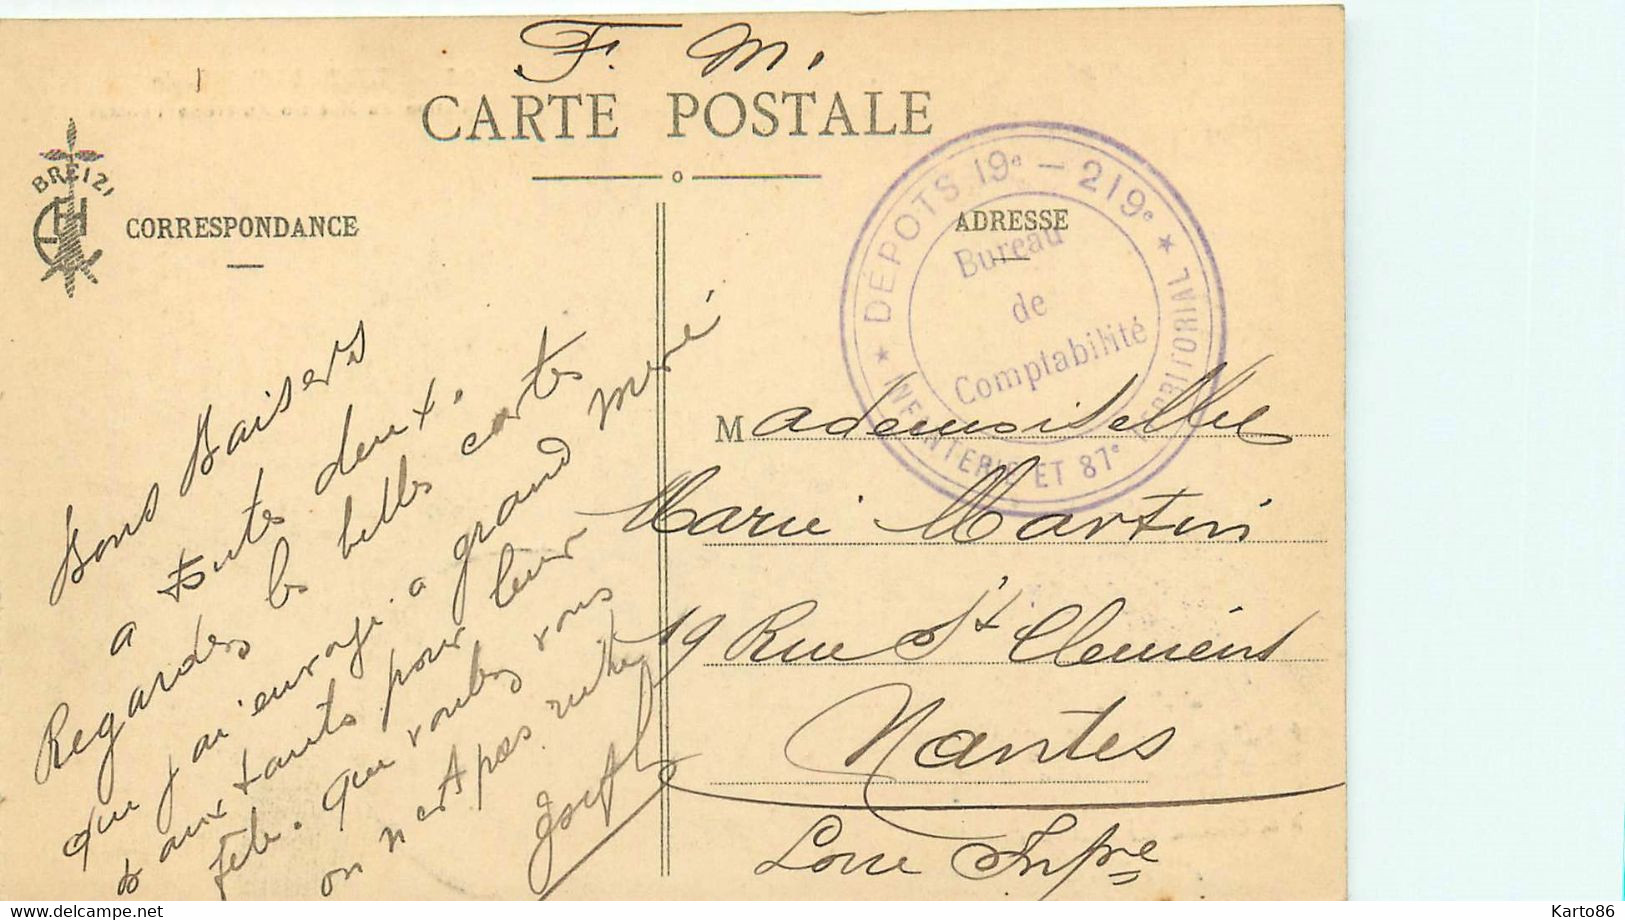 F. M.
CARTE POSTALE
BREIZ
CORRESPONDANCE
ADRESSE
DÉPOTS 19e - 219e
INFANTERIE ET 87e TERRITORIAL
Bureau
de
Comptabilité
Bons Baisers
a toutes deux.
Regardes les belles cartes
que j'ai envoyé a grand méré
& aux tantes pour leur
fête. Que voulez vous
on n'est pas riche
Joseph
Mademoiselle
Marie Martin
19 Rue St Clement
Nantes
Loire Infre
delcampe.net
Karto86